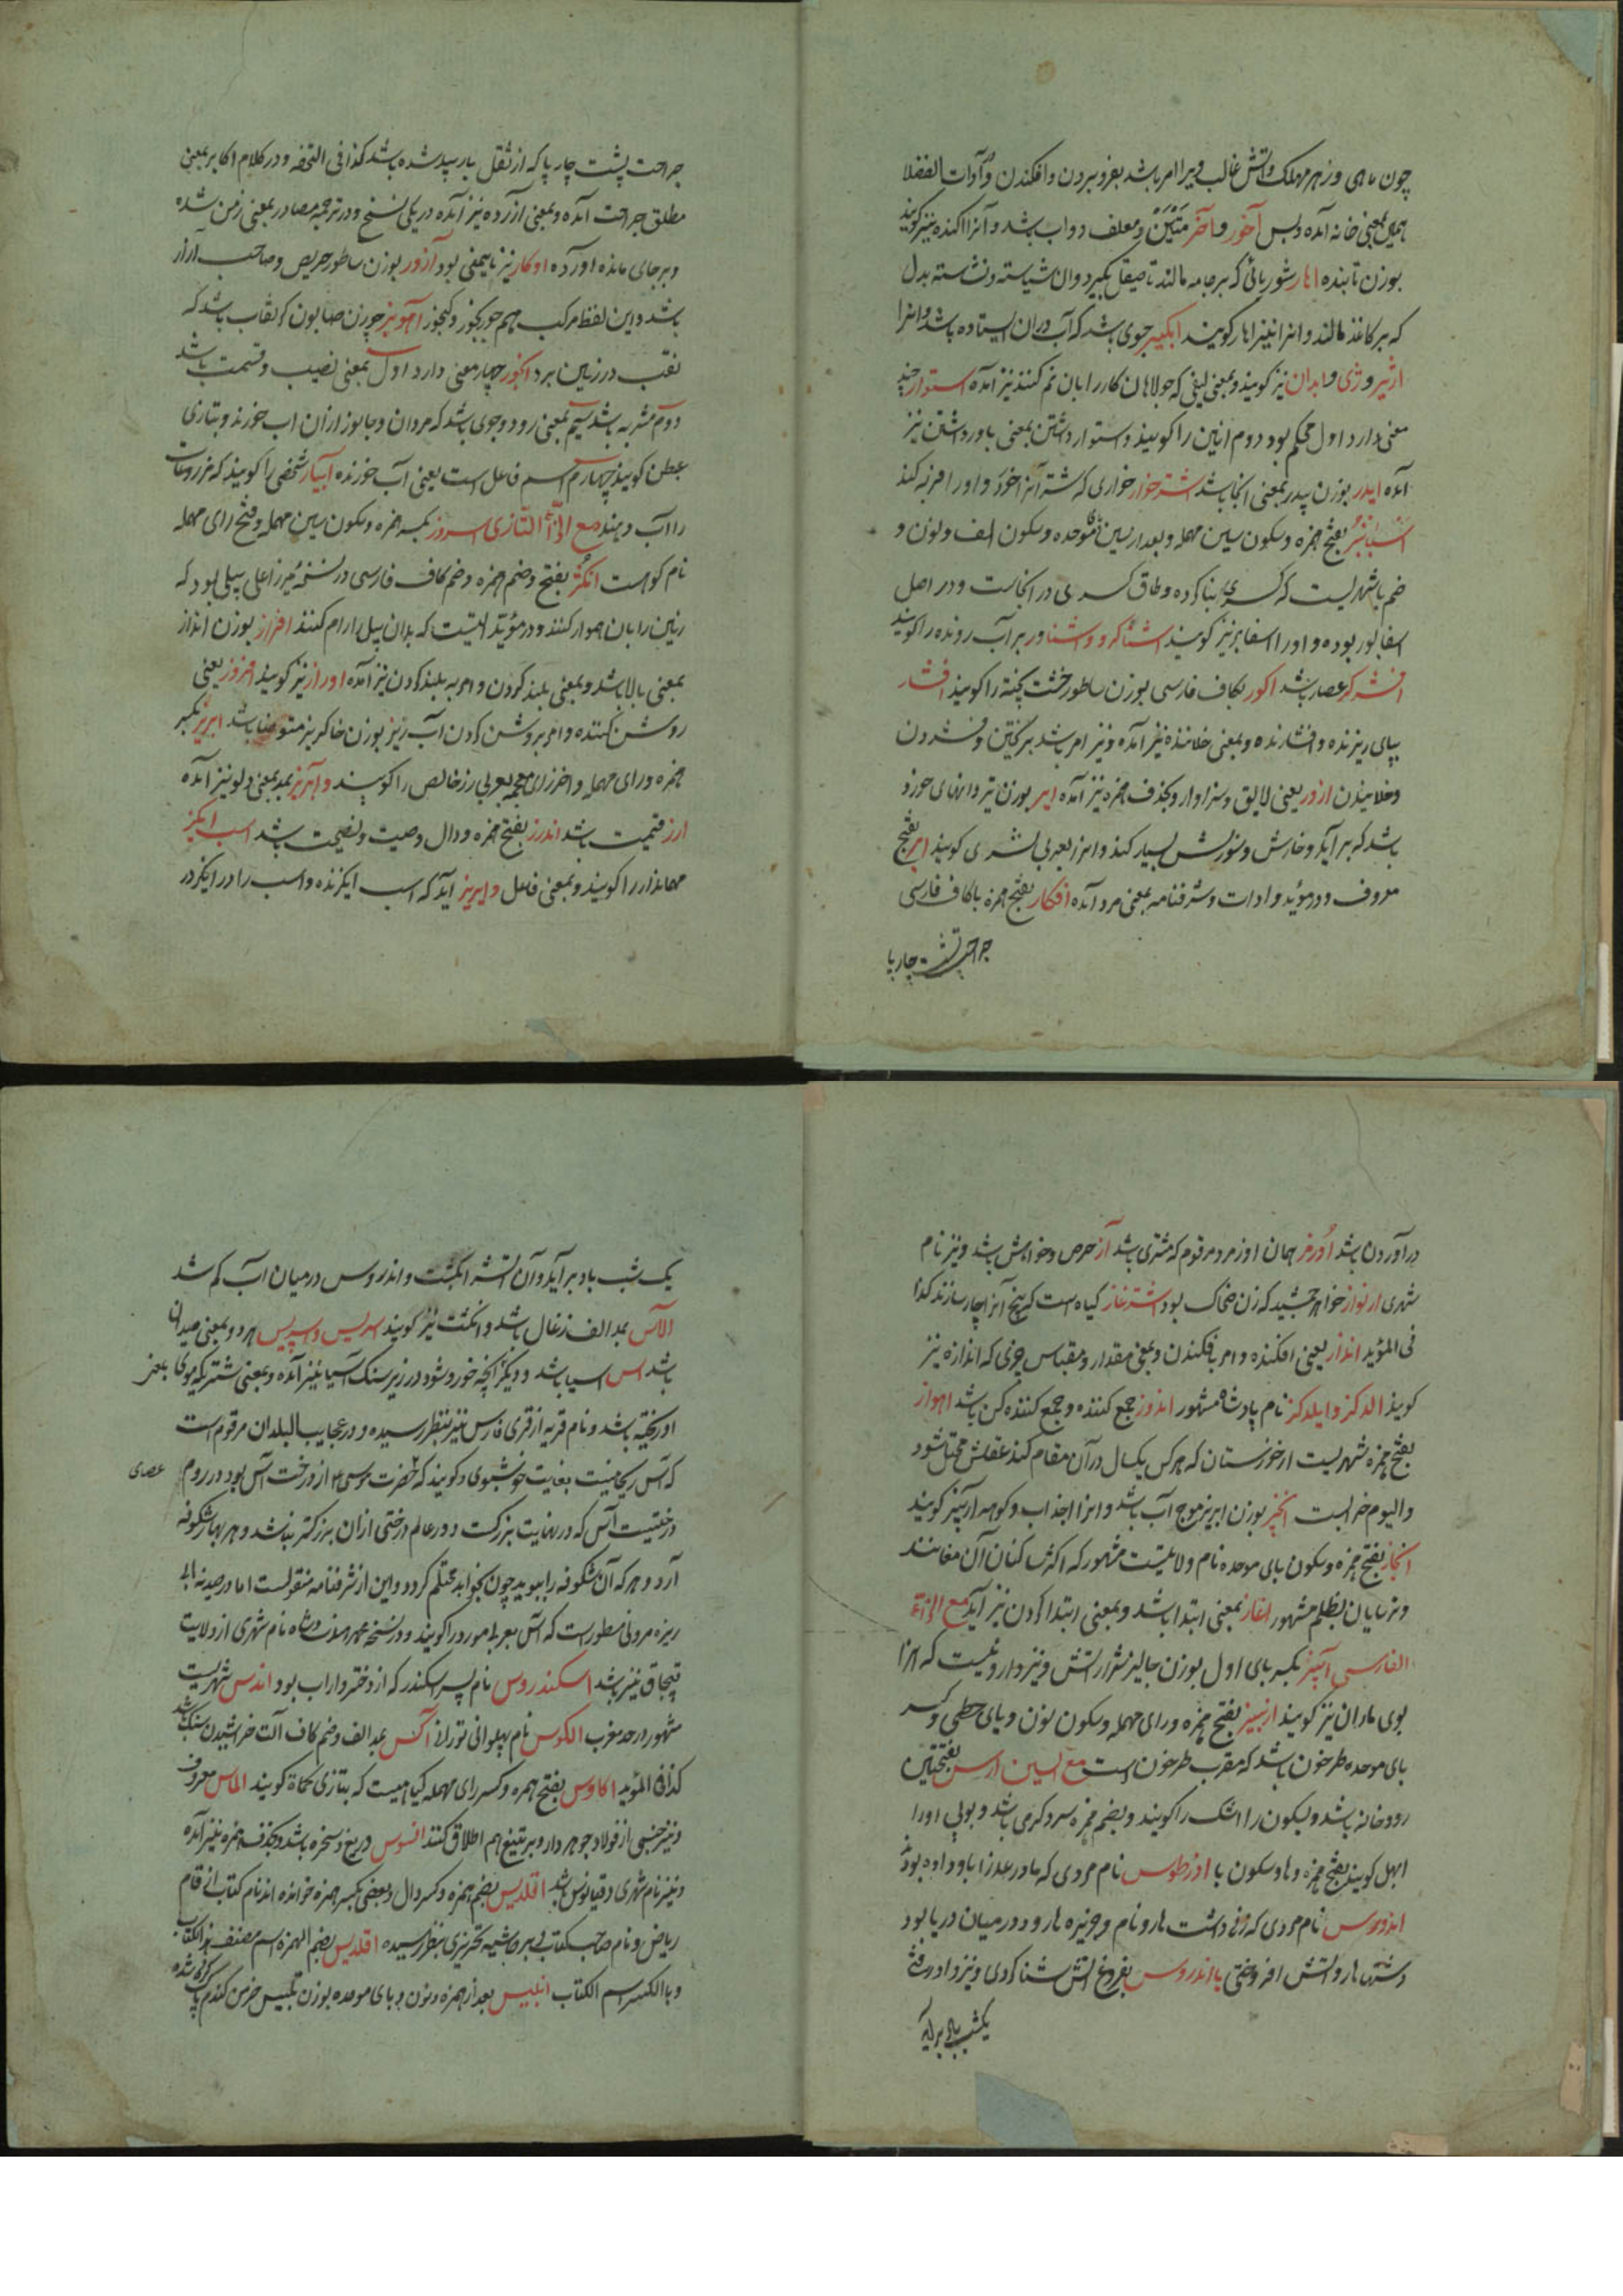 چون ماهی و زهر مهلک و آتش غالب و نیز امر باشد بفرو بردن و افکندن و در ادات الفضلا
بمعنی خانه آمده و بس آخور و آخر معلف دواب باشد و آنرا آکنده نیز گویند
بوزن تابنده اهار شوربائی که بر جامه مالند تا صیقل گیرد و ان شیاسته و نشاسته بدل
که بر کاغذ مالند و انرا نیز اهار کویند ابکیر جوی باشد که آب دران ایستاده باشد و انرا
اژیر و ژی و ابدان نیز کویند و بمعنی لیفی که جولاهان کار را بان نم کنند نیز آمده استوار چند
معنی دارد اول محکم بود دوم امین را کویند و استوار داشتن بمعنی باور داشتن نیز
آمده ایدر بوزن پدر بمعنی انجا باشد اشترخوار خواری که شتر آنرا خورد و او را فربه کند
بفتح همزه و سکون سین مهمله و بعد از سین بای موحده و سکون الف و نون و
ضم با شهریست که کسری بنا کرده و طاق کسری در انجاست و در اصل
اسفابور بوده و او را اسفابر نیز کویند اشناکر و اشناور بر آب رونده را کویند
افشرکر عصار باشد اکور بکاف فارسی بوزن ساطور خشت پخته را کویند افشار
بپای ریزنده و افشارنده و بمعنی خلاننده نیز آمده و نیز امر باشد بریختن و فشردن
و خلانیدن ازور یعنی لایق و سزاوار و بحذف همزه نیز آمده ایر بوزن تیر دانهای خورد
باشد که بر آید و خارش و سوزش بسیار کند و انرا بعربی شری کویند ابر بفتح
معروف و در مؤید و ادات و شرفنامه بمعنی مرد آمده افکار بفتح همزه با کاف فارسی
جراحت پشت چارپا
جراحت پشت چارپا که از ثقل بار پیدا شده باشد کذا فی التحفه و در کلام اکابر بمعنی
مطلق جراحت آمده و بمعنی آزرده نیز آمده در یکی نسخ و در ترجمه مصادر بمعنی زمن شده
و بر جای مانده اورده اوکار نیز بایمعنی بود آزور بوزن ساطور حریص و صاحب آزار
باشد و این لفظ مرکب همچو رنجور و کنجور آهوبر چوبزن صابون کر نقاب باشد که
نقب در زمین برد ابخور چهار معنی دارد اول بمعنی نصیب و قسمت باشد
دوم مشربه باشد سیم بمعنی رود و جوی باشد که مردان و جانور ازان اب خورند و بتازی
عطن کویند چهارم اسم فاعل است یعنی آب خورنده آبیار شخصی را کویند که مزروعات
را آب دهند مع الزاء التازی اسروز بکسر همزه و سکون سین مهمله و فتح رای مهمله
نام کوهست انکژ بفتح و ضم همزه و ضم کاف فارسی در نسخه میرزا علی بیلی بود که
زمین را بان هموار کنند و در مؤید التیست که بدان پیل را رام کنند افراز بوزن انداز
بمعنی بالا باشد و بمعنی بلند کردن و امر به بلند کردن نیز آمده اوراز نیز کویند افروز یعنی
روشن کننده و امر بروشن کردن آب ریز بوزن خاکریز متوضا باشد ابریز بکسر
همزه و رای مهمله و اخر زای معجمه بعربی زر خالص را کویند و آبریز بمد بمعنی دلو نیز آمده
ارز قیمت باشد اندرز بفتح همزه و دال وصیت و نصیحت باشد اسب انکیز
مهماندار را کویند و بمعنی فاعل و ابریز آید که اسب انکیزنده و اسب را در انکیزد
در آوردن باشد اورمز همان اورمزد مرقوم که مشتری باشد آز حرص و خواهش باشد و نیز نام
شهری ارنواز خواهر جمشید که زن ضحاک بود اشترغاز کیاه است که بیخ آنرا اچار سازند کذا
فی المؤید انداز یعنی افکنده و امر بافکندن و بمعنی مقدار و مقیاس چیزی که اندازه نیز
کویند الدکز و ایلدکز نام پادشاه مشهور اندوز جمع کننده و جمع کننده کن باشد اهواز
بفتح همزه شهریست از خوزستان که هر کس یکسال در آن مقام کند عقلش مختل شود
و الیوم خرابست انخیز بوزن ابریز موج آب باشد و انرا اجذاب و کوهه ابخیز کویند
انجاز بفتح همزه و سکون بای موحده نام ولایتیست مشهور که اکثر ساکنان آن مغانند
و ترسایان بظلم مشهور اغاز بمعنی ابتدا باشد و بمعنی ابتدا کردن نیز آید مع الزاء
الفارسی آبیژ بکسر بای اول بوزن جالیز شرار آتش و نیز داروئیست که انرا
بوی ماران نیز کویند ارنبیز بفتح همزه و رای مهمله و سکون نون و یای حطی و کسر
بای موحده طرخون باشد که مقرب طرخون است مع السین ارس بفتحتین
رودخانه باشد و بسکون را اشک را کویند و بضم همزه سرو کوهی باشد و بوبی اورا
ابهل کویند بفتح همزه و ها و سکون با ادرطوس نام مردی که مادر عذرا باو داده بودند
اندروس نام مردی که زنی داشت هارو نام و جزیره هارو در میان دریا بود
و شبها هارو آتش افروختی تا اندروس بفروغ آتش شنا کردی و نیز و او رفتی
یکشب باد برآید
یک شب باد بر آید و آن آتش را بکشت و اندروس در میان آب کم شد
الآس بمد الف زغال باشد و انکشت نیز کویند اسریس و اسپریس هر دو بمعنی میدان
باشد اس اسیا باشد و دیکر آنچه خورد شود در زیر سنک آسیا نیز آمده و بمعنی شتری که موی بعض
او ریخته باشد و نام قریه از قری فارس نیز بنظر رسیده و در عجایب البلدان مرقوم است
که آس ریحانیست بغایت خوشبوی و کویند که حضرت موسی ع از درخت آس بود در روم عصای
درختیست آس که در نهایت بزرکست و در عالم درختی ازان بزرکتر نباشد و هر بهار شکوفه
آرد و هر که آن شکوفه را ببوید چون بخوابد محتلم کردد و این از شرفنامه منقولست اما در صیدنه ابی
ریحان بیرونی مسطور است که آس بعربی مورد را کویند و در نسخه نام شهری از ولایت
قبچاق نیز باشد اسکندروس نام پسر اسکندر که از دختر داراب بود اندس شهریست
مشهور در حد مغرب الکوس نام پهلوانی تورانی آکس بمد الف و ضم کاف آلت خراشیدن سنک باشد
کذا فی المؤید اکاوس بفتح همزه و کسر رای مهمله کیاهیست که بتازی کماة کویند الماس معروف
و نیز جنسی از فولاد جوهردار و بر تیغ هم اطلاق کنند افسوس دریغ و سخره باشد و بحذف همزه نیز آمده
و نیز نام شهری دقیانوس باشد اقلدیس بضم همزه و کسر دال و بعضی بکسر همزه خوانده اند نام کتاب ارقام
ریاض و نام صاحب کتاب بر حاشیه تحریری بنظر رسیده اقلدیس بضم الهمزه اسم مصنف هذا الکتاب
و بالکسر اسم الکتاب انبیس بعد از همزه و نون و بای موحده بوزن تلبیس خرمن کندم پاک کرده شده